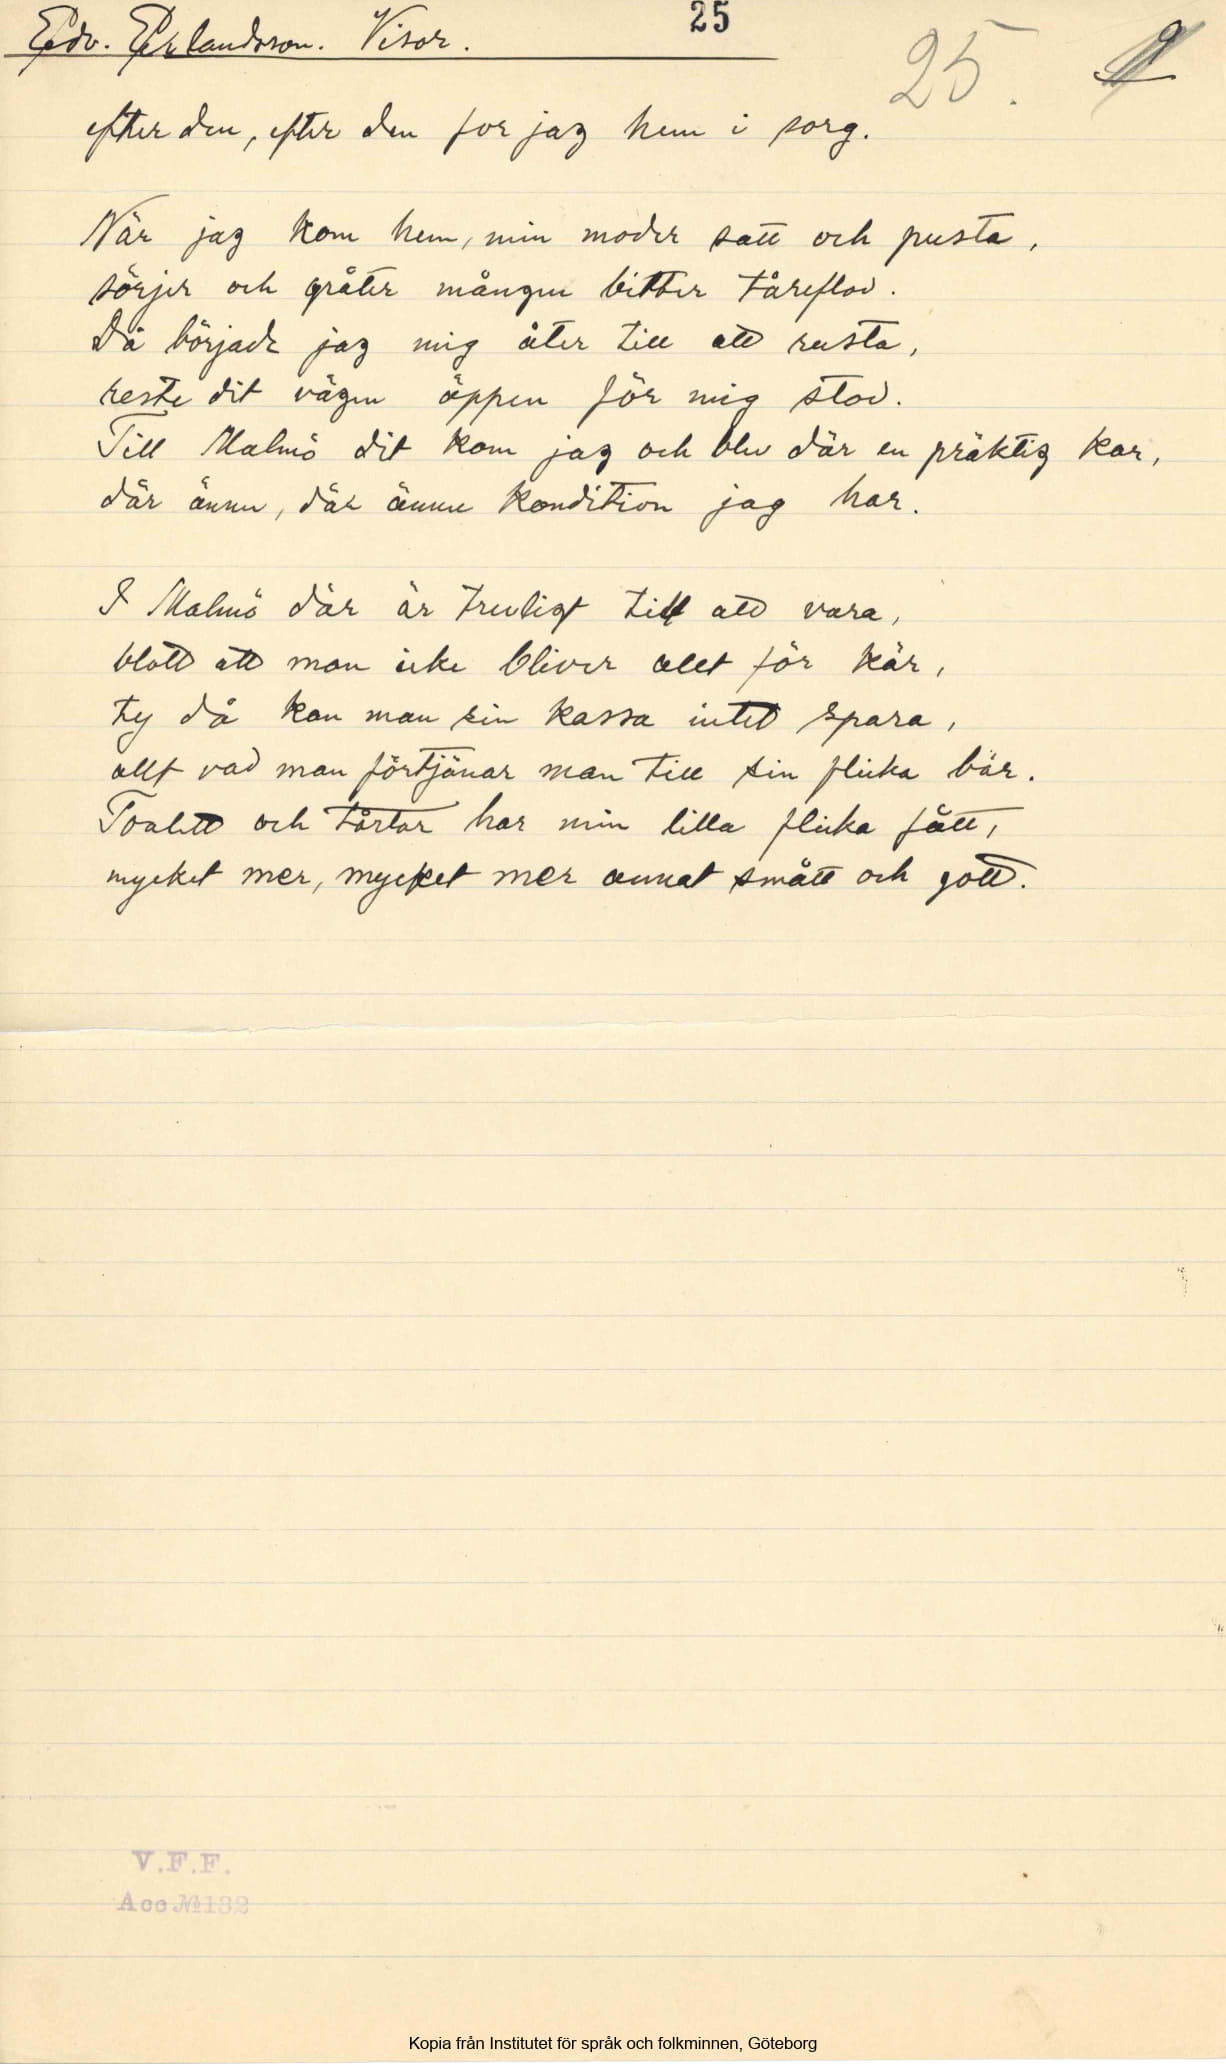 Edv. Erlandsson. Visor.
25
25.
efter den, efter den for jag hem i sorg.
När jag kom hem, min moder satt och pusta,
sörjer och gråter mången bitter tåreflod.
Då började jag mig åter till att rusta,
reste dit vägen öppen för mig stod.
Till Malmö dit kom jag och blev där en präktig kar,
där ännu, där ännu kondition jag har.
I Malmö där är trevligt till att vara,
blott att man icke bliver allt för kär,
ty då kan man sin kassa intet spara,
allt vad man förtjänar man till sin flicka bär.
Toalett och tårtor har min lilla flicka fått,
mycket mer, mycket mer annat smått och gott.
V.F.F.
Acc № 132
Kopia från Institutet för språk och folkminnen, Göteborg